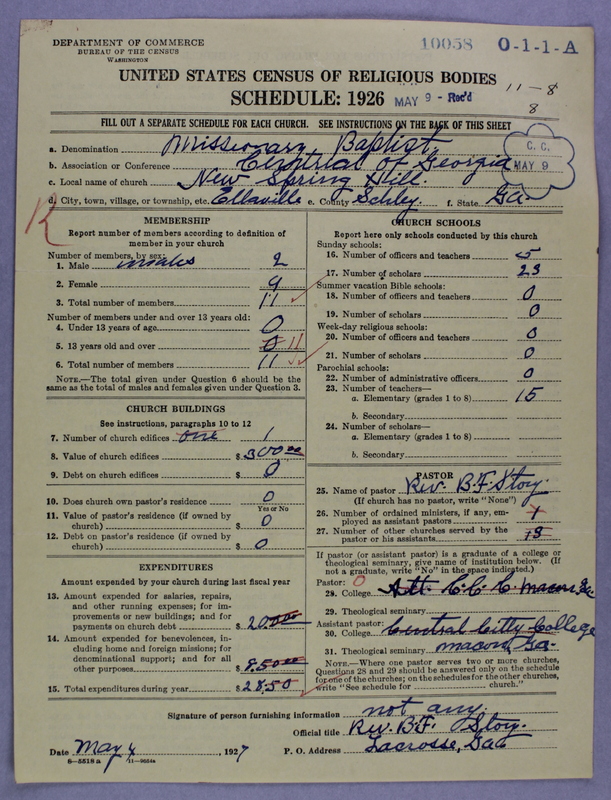 DEPARTMENT OF COMMERCE
BUREAU OF THE CENSUS
WASHINGTON
10058 O-1-1-A
UNITED STATES CENSUS OF RELIGIOUS BODIES
SCHEDULE: 1926 MAY 9 - Rec'd
11-8
8
FILL OUT A SEPARATE SCHEDULE FOR EACH CHURCH. SEE INSTRUCTIONS ON THE BACK OF THIS SHEET
C. C.
MAY 9
a. Denomination Missionary Baptist
b. Association or Conference Central of Georgia
c. Local name of church New Spring Hill.
d. City, town, village, or township, etc. Ellaville e. County Schley. f. State Ga.
R
MEMBERSHIP
Report number of members according to definition of
member in your church
Number of members, by sex:
1. Male 2
2. Female 9
3. Total number of members 11
Number of members under and over 13 years old:
4. Under 13 years of age 0
5. 13 years old and over 0 11
6. Total number of members 11
NOTE.—The total given under Question 6 should be the
same as the total of males and females given under Question 3.
CHURCH BUILDINGS
See instructions, paragraphs 10 to 12
7. Number of church edifices one 1
8. Value of church edifices $ 300.00
9. Debt on church edifices $ 0
10. Does church own pastor's residence 0
Yes or No
11. Value of pastor's residence (if owned by
church) $ 0
12. Debt on pastor's residence (if owned by
church) $ 0
EXPENDITURES
Amount expended by your church during last fiscal year
13. Amount expended for salaries, repairs,
and other running expenses; for im-
provements or new buildings; and for
payments on church debt $ 20.00
14. Amount expended for benevolences, in-
cluding home and foreign missions; for
denominational support; and for all
other purposes $ 8.50
15. Total expenditures during year $ 28.50
CHURCH SCHOOLS
Report here only schools conducted by this church
Sunday schools:
16. Number of officers and teachers 5
17. Number of scholars 23
Summer vacation Bible schools:
18. Number of officers and teachers 0
19. Number of scholars 0
Week-day religious schools:
20. Number of officers and teachers 0
21. Number of scholars 0
Parochial schools:
22. Number of administrative officers 0
23. Number of teachers—
a. Elementary (grades 1 to 8) 15
b. Secondary
24. Number of scholars—
a. Elementary (grades 1 to 8)
b. Secondary
PASTOR
25. Name of pastor Rev. B.F. Story.
(If church has no pastor, write "None")
26. Number of ordained ministers, if any, em-
ployed as assistant pastors 1
27. Number of other churches served by the
pastor or his assistants
If pastor (or assistant pastor) is a graduate of a college or
theological seminary, give name of institution below. (If
not a graduate, write "No" in the space indicated.)
Pastor: 0
28. College Att. C.C.C. Macon, Ga.
29. Theological seminary
Assistant pastor:
30. College Central City College
31. Theological seminary Macon, Ga.
NOTE.—Where one pastor serves two or more churches,
Questions 28 and 29 should be answered only on the schedule
for one of the churches; on the schedules for the other churches,
write "See schedule for church."
Signature of person furnishing information not any.
Official title Rev. B.F. Story.
Date May 4, 1927 P. O. Address Lacrosse, Ga.
8-5518 a